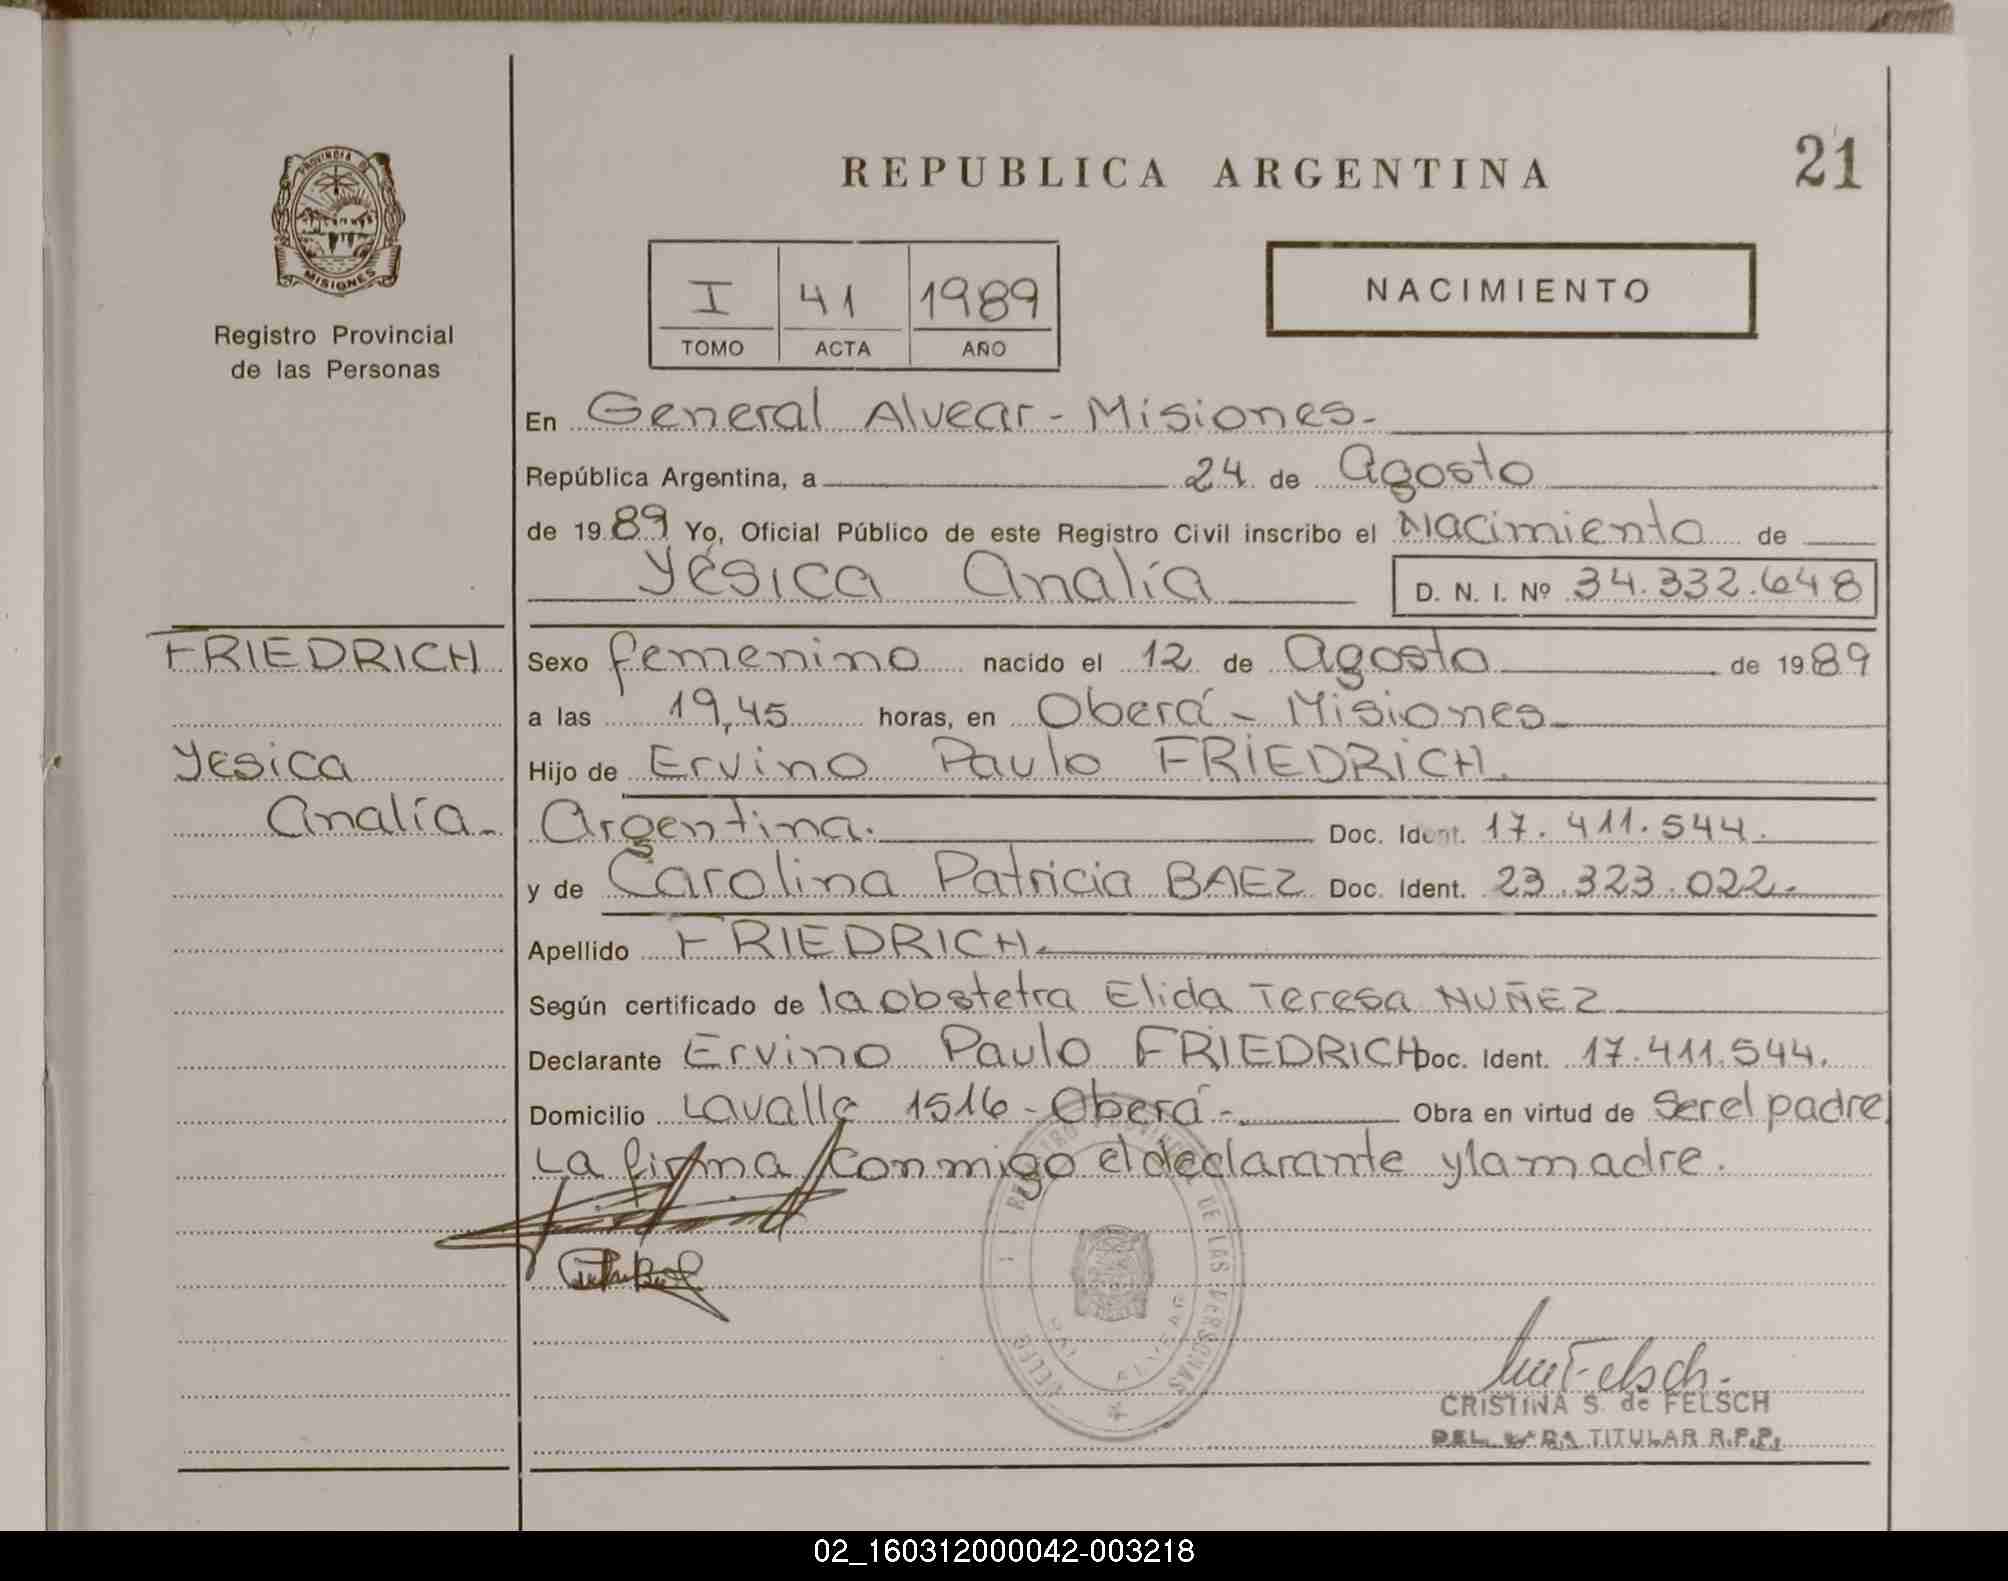 PROVINCIA DE
MISIONES
Registro Provincial
de las Personas
REPUBLICA ARGENTINA
21
I 41 1989
TOMO ACTA AÑO
NACIMIENTO
En General Alvear - Misiones.-
República Argentina, a 24 de Agosto
de 1989 Yo, Oficial Público de este Registro Civil inscribo el Nacimiento de
Yésica Analía D. N. I. Nº 34.332.648
FRIEDRICH
Yesica
Analía.-
Sexo femenino nacido el 12 de Agosto de 1989
a las 19,45 horas, en Oberá - Misiones
Hijo de Ervino Paulo FRIEDRICH.
Argentina. Doc. Ident. 17.411.544.
y de Carolina Patricia BAEZ Doc. Ident. 23.323.022.-
Apellido FRIEDRICH.
Según certificado de la obstetra Elida Teresa NUÑEZ
Declarante Ervino Paulo FRIEDRICH Doc. Ident. 17.411.544.
Domicilio Lavalle 1516 - Oberá - Obra en virtud de Ser el padre
La firma conmigo el declarante y la madre.
DE LAS PERSONAS
ALVEAR
CRISTINA S. de FELSCH
TITULAR R.P.P.
02_160312000042-003218